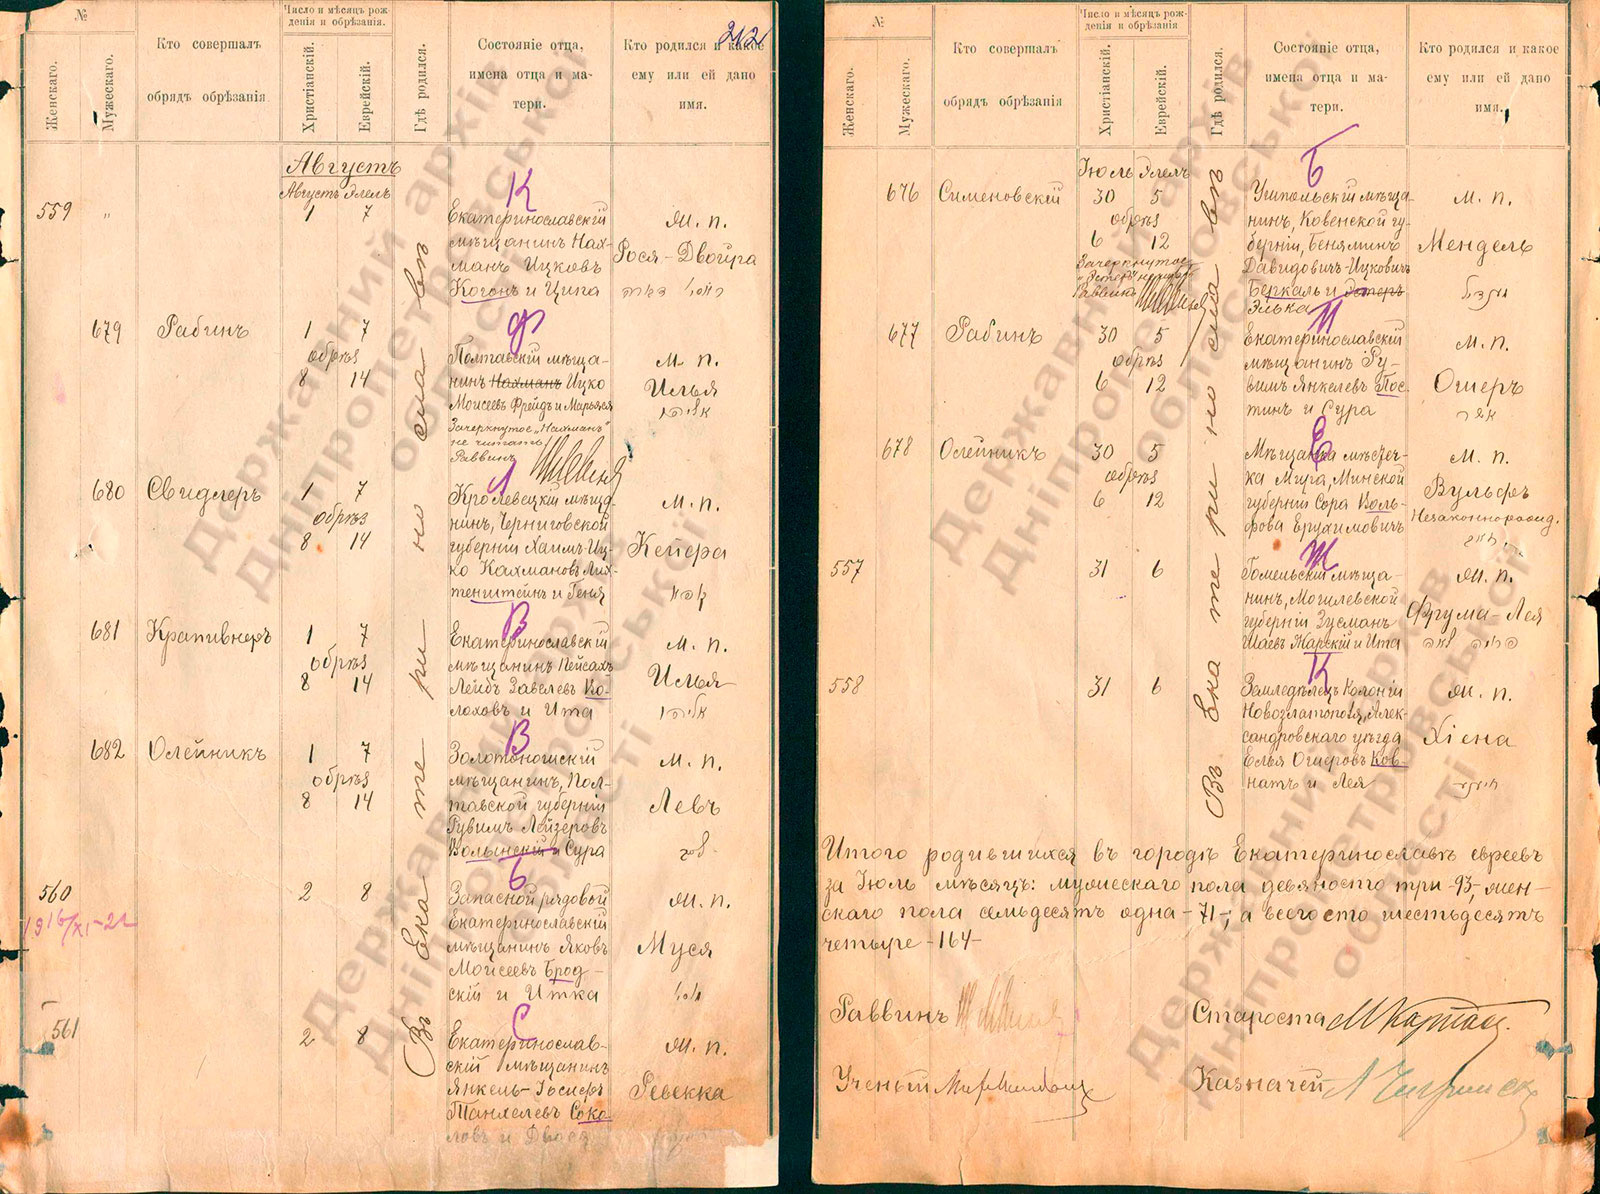 №
Женскаго.
Мужескаго.
Кто совершалъ
обрядъ обрѣзанія
Число и мѣсяцъ рож-
денія и обрѣзанія.
Христіанскій.
Еврейскій.
Гдѣ родился.
Состояніе отца,
имена отца и ма-
тери.
212
Кто родился и какое
ему или ей дано
имя.
Августъ
Августъ Элелъ
559 „ 1 7
К
Екатеринославскій
мѣщанинъ Нах-
манъ Ицковъ
Когонъ и Ципа
М. п.
Рося-Двойра
679 Рабинъ 1 7
обрѣз
8 14
Ф
Полтавскій мѣща-
нинъ Нахманъ Ицко
Моисеевъ Фрейдъ и Марьяся
Зачеркнутое „Нахманъ"
не читать
Раввинъ
м. п.
Илья
אליהו
680 Свидлеръ 1 7
обрѣз
8 14
Л
Кролевецкій мѣща-
нинъ, Черниговской
губерніи Хаимъ-Иц-
ко Кахмановъ Лих-
тенштейнъ и Геня
м. п.
Кейфа
681 Крапивнеръ 1 7
обрѣз
8 14
В
Екатеринославскій
мѣщанинъ Пейсахъ
Лейбъ Завелевъ Ко-
лоховъ и Ита
м. п.
Илья
אליהו
682 Олейникъ 1 7
обрѣз
8 14
В
Золотоношскій
мѣщанинъ, Пол-
тавской губерніи
Рувимъ Лейзеровъ
Волынскій и Сура
м. п.
Левъ
560 2 8
1916/XI-22
Б
Запасной рядовой
Екатеринославскій
мѣщанинъ Яковъ
Моисеевъ Брод-
скій и Итка
м. п.
Муся
561 2 8
С
Екатеринослав-
скій мѣщанинъ
Янкель-Іосифъ
Танхелевъ Соко-
ловъ и Двося
м. п.
Ревекка
Въ Екатеринославѣ
№
Женскаго.
Мужескаго.
Кто совершалъ
обрядъ обрѣзанія
Число и мѣсяцъ рож-
денія и обрѣзанія.
Христіанскій.
Еврейскій.
Гдѣ родился.
Состояніе отца,
имена отца и ма-
тери.
Кто родился и какое
ему или ей дано
имя.
Іюль Элелъ
676 Сименовскій 30 5
обрѣз
6 12
Зачеркнутое
„Эстеръ" не читать
Раввинъ
Б
Ушпольскій мѣща-
нинъ, Ковенской гу-
берніи, Беняминъ
Давидовичъ-Ицковичъ
Беркаль и Эстеръ
Элька
м. п.
Мендель
677 Рабинъ 30 5
обрѣз
6 12
П
Екатеринославскій
мѣщанинъ Ру-
вимъ Янкелевъ Пос-
тинъ и Сура
м. п.
Ошеръ
אשר
678 Олейникъ 30 5
обрѣз
6 12
Е
Мѣщанка мѣстеч-
ка Мира, Минской
губерніи Сора Воль-
фова Ерухимовичъ
м. п.
Вульфъ
Незаконнорожд.
557 31 6
Ж
Гомельскій мѣща-
нинъ, Могилевской
губерніи Зусманъ
Шаевъ Жарскій и Ита
м. п.
Фрума-Лея
פרומה לאה
558 31 6
К
Земледѣлецъ Колоніи
Новозлатополя, Алек-
сандровскаго уѣзда
Елья Ошеровъ Ков-
натъ и Лея
м. п.
Хіена
Въ Екатеринославѣ
Итого родившихся въ городѣ Екатеринославѣ евреевъ
за Іюль мѣсяцъ: мужескаго пола девяносто три -93-, жен-
скаго пола семьдесятъ одна -71-, а всего сто шестьдесятъ
четыре -164-
Раввинъ
Староста М Карпасъ.
Ученый
Казначей
Державний архів
Дніпропетровської
області